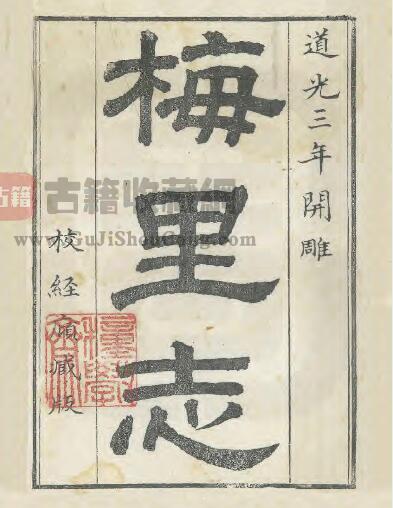 道光三年開雕
梅里志
校經廎藏版
古籍
古籍收藏網
www.GuJiShouCang.com